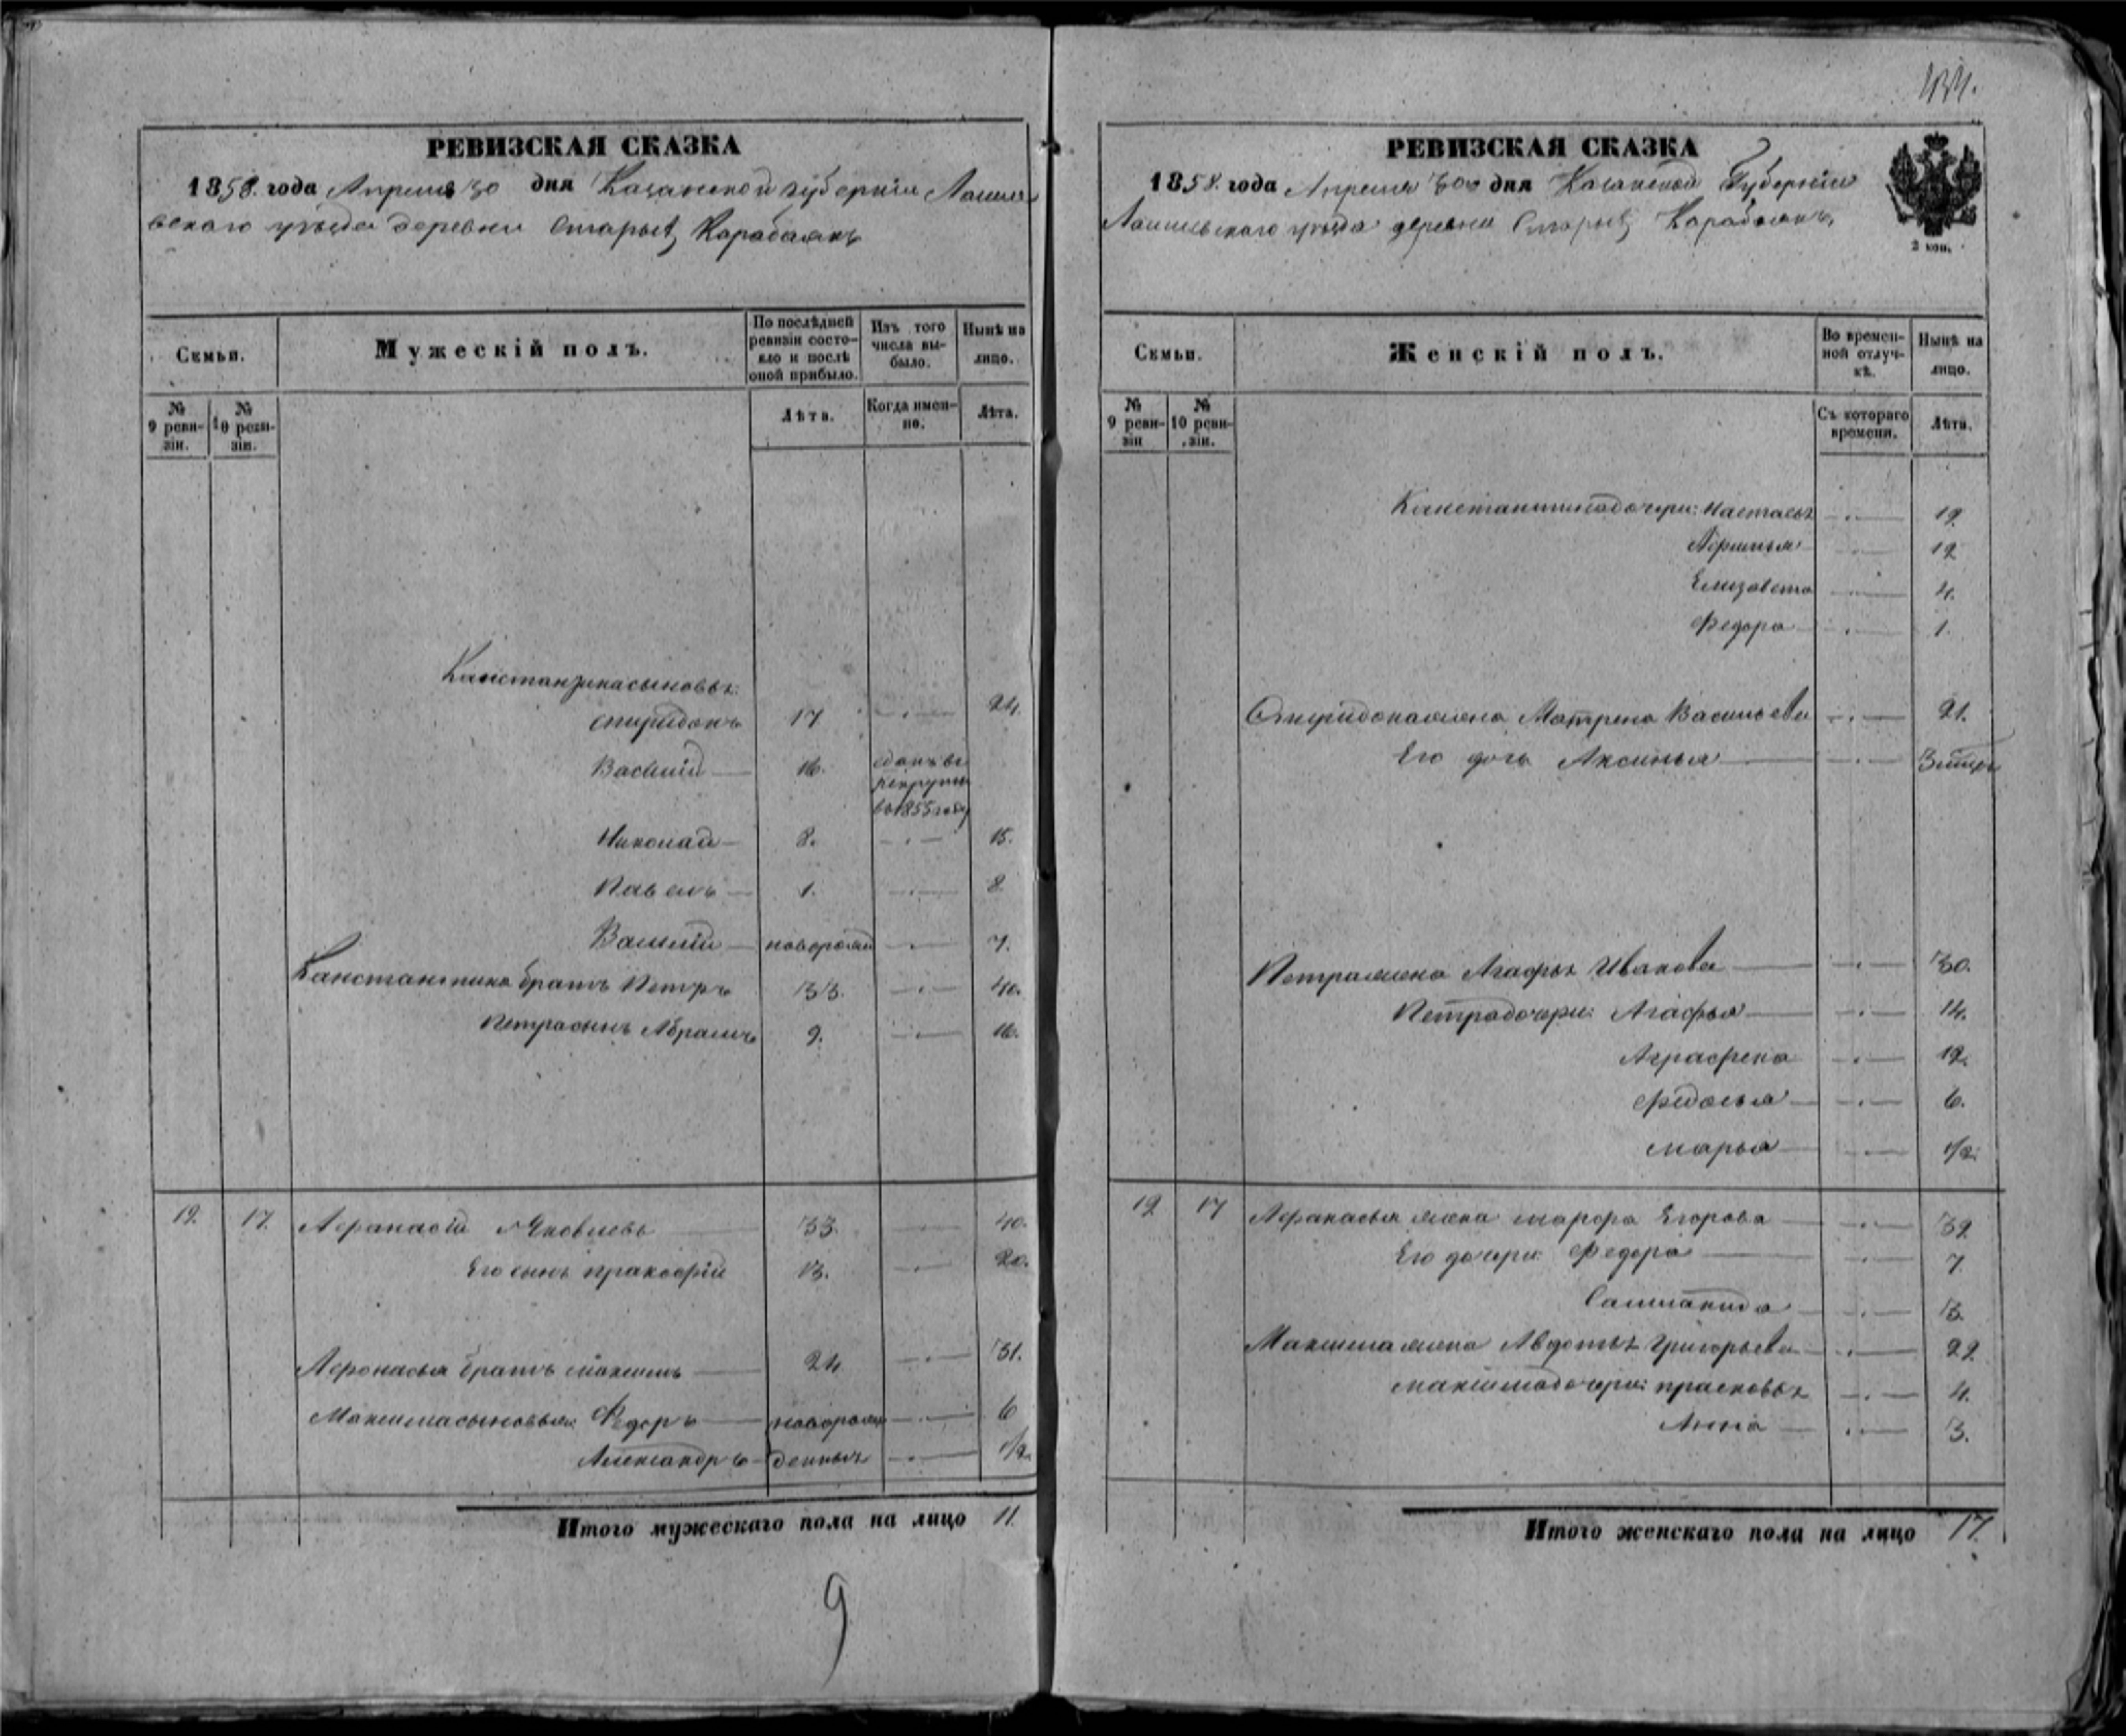 РЕВИЗСКАЯ СКАЗКА
1858. года Апреля 30 дня Казанской губернiи Лаише
вскаго уѣзда деревни Старыхъ Карабаянъ
Семьи.
Мужескій полъ.
По послѣдней ревизіи состояло и послѣ оной прибыло.
Изъ того числа выбыло.
Нынѣ на лицо.
№ 9 ревизіи.
№ 10 ревизіи.
Лѣта.
Когда именно.
Лѣта.
Констан сыновья:
Спиридонъ 17 24.
Василій 16. сданъ въ
рекруты
въ 1855 году
Николай 8. 15.
Павелъ 1. 8
Василій новорожд 7.
Канстантина братъ Петръ 33. 40.
Петра сынъ Абрамъ 9. 16.
12. 17. Афанасій Яковлевъ 33. 40.
Его сынъ пракофiй 13. 20.
Афонасья братъ Максимъ 24. 31.
Максима сыновья: Федоръ новорож 6
Александръ денные 1/2.
Итого мужескаго пола на лицо 11.
9
РЕВИЗСКАЯ СКАЗКА
1858. года Апреля 30го дня Казанской Губернiи
Лаишевскаго уѣзда деревни Старыхъ Карабаянъ,
2 коп.
Семьи.
Женскій полъ.
Во временной отлучкѣ.
Нынѣ на лицо.
№ 9 ревизіи
№ 10 ревизіи.
Съ котораго времени.
Лѣта.
Канстантина дочери: Настасья 19.
12
Елизавета 4.
Федора 1.
Спиридона жена Матрена Васильева 21.
Его дочь Аксинья
Петра жена Агафья Иванова 30.
Петра дочери: Агафья 14.
Аграфена 12.
Федосья 6.
Марья 1/2.
12 17 Афанасья жена Егорова 39
Его дочери: Федора 7.
3.
Максима жена Авдотья Григорьева 22
Максима дочери: прасковья 4.
Анна 3.
Итого женскаго пола на лицо 17.